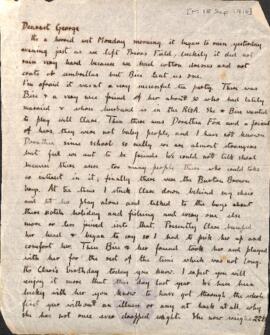 [? 18 Sep 1916]
Dearest George
It's a horrid wet Monday morning it began to rain yesterday
evening just as we left Paris Field. Luckily it did not
rain very hard because we had cotton dresses and not
coats or umbrellas but Bice lent us one.
I'm afraid it wasn't a very successful tea party. There was
Bice & a very nice friend of her about 30 who had lately
married & whose husband is in the RFA. She & Bice wanted
to play with Clare. Then there was Dorothea Fox and a friend
of hers, they were not baby people, and I have not known
Dorothea since school so really we are almost strangers
but feel we ought to be friends. We could not talk school
because there were too many people there who could take
no interest in it, finally there were the Burton Brown
boys. At tea time I stuck Clare down behind my chair
and let her play alone and talked to the boys about
there motor holiday and fishing and every one else
more or less joined into that. Presently Clare bumped
her head & began to cry so I had to pick her up and
comfort her. Then Bice & her friend took her and played
with her for the rest of the time which was not long.
It's Clare's birthday today you know. I expect you will
enjoy it more than this day last year. We have been
lucky with her you know to have got through the whole
first year without an illness or any at back at all, why
she has not once ever dropped weight. She now weighs 22 lb